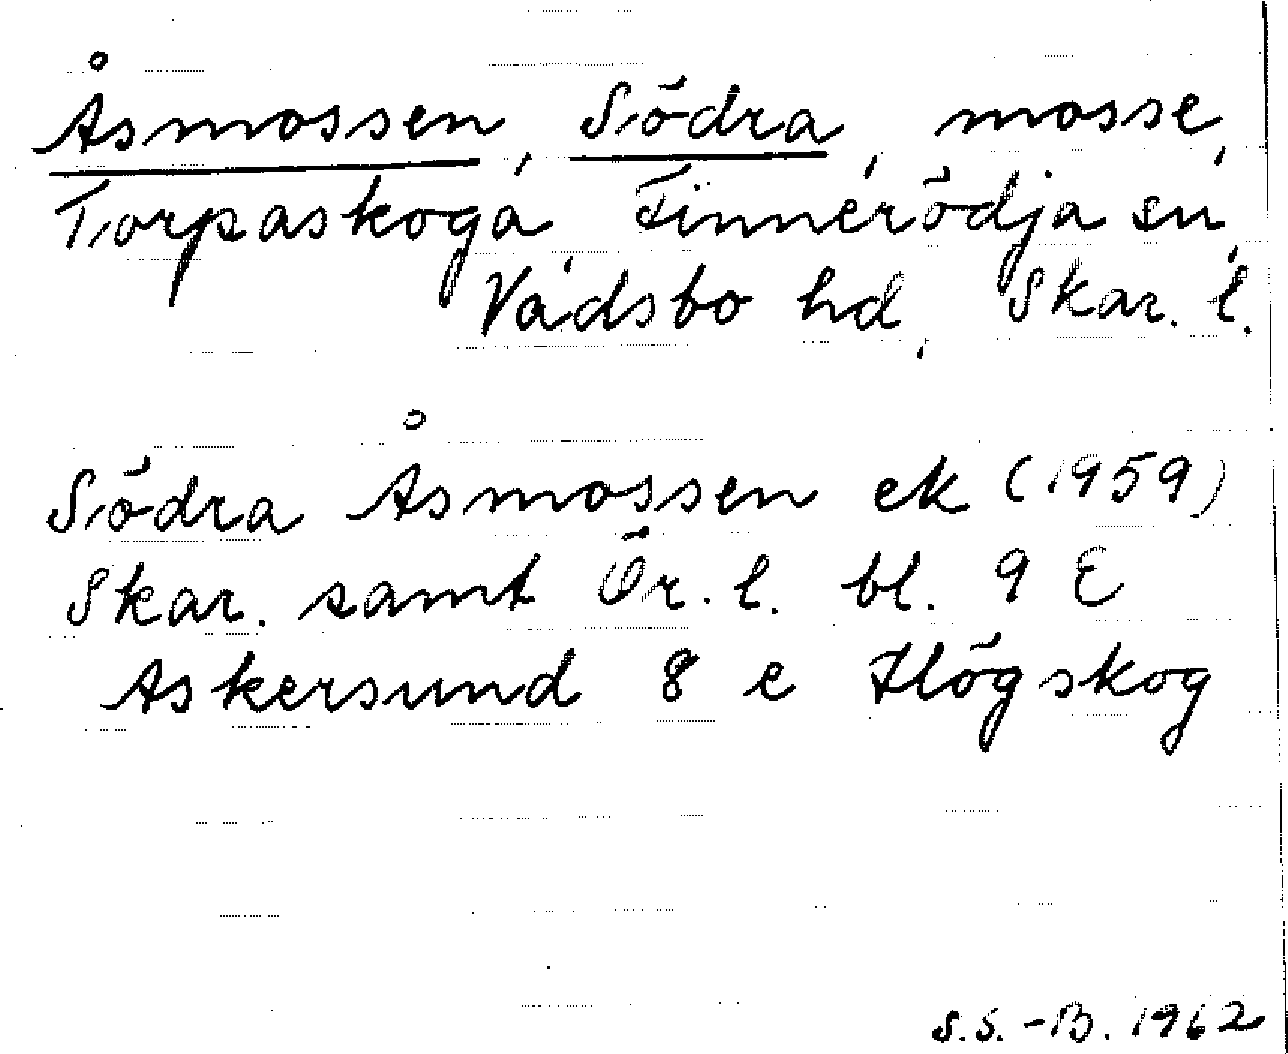 Åsmossen, Södra, mosse,
Torpaskoga, Finnerödja sn,
Vadsbo hd, Skar. l.
Södra Åsmossen ek (1959)
Skar. samt Ör. l. bl. 9 E
Askersund 8 e Högskog
S.S.-B. 1962